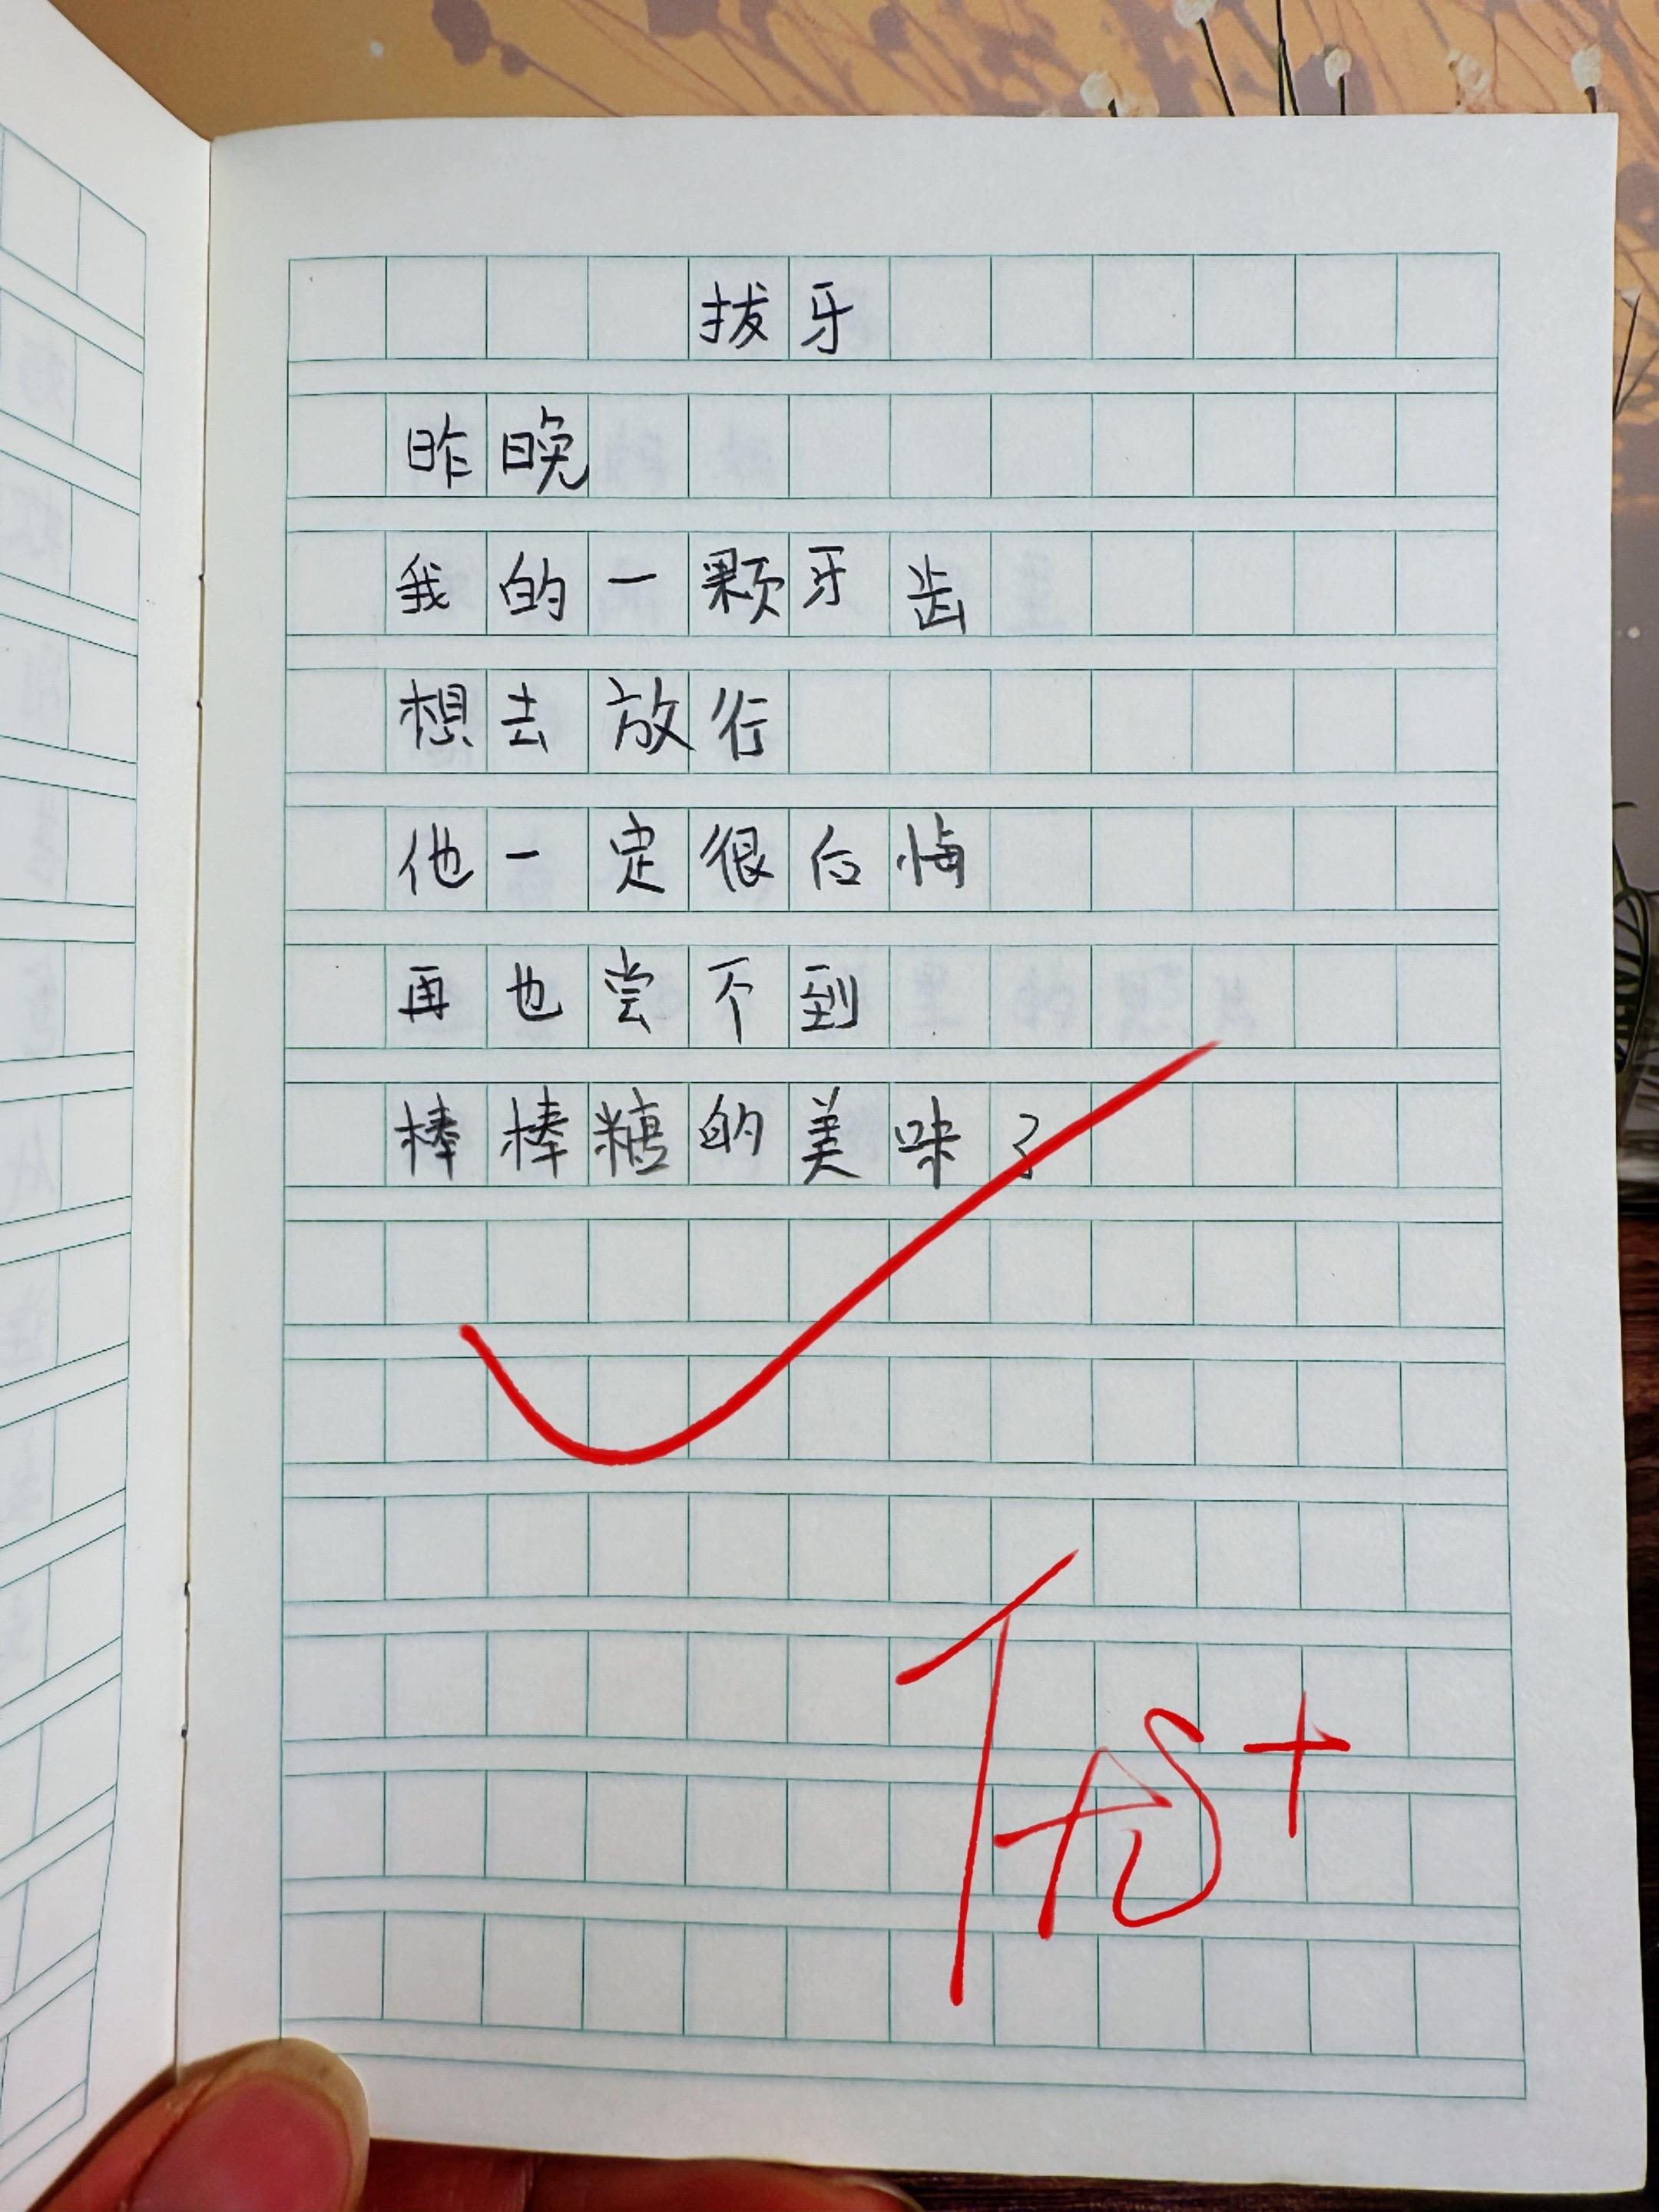 拔牙
昨晚
我的一颗牙齿
想去放行
他一定很后悔
再也尝不到
棒棒糖的美味了